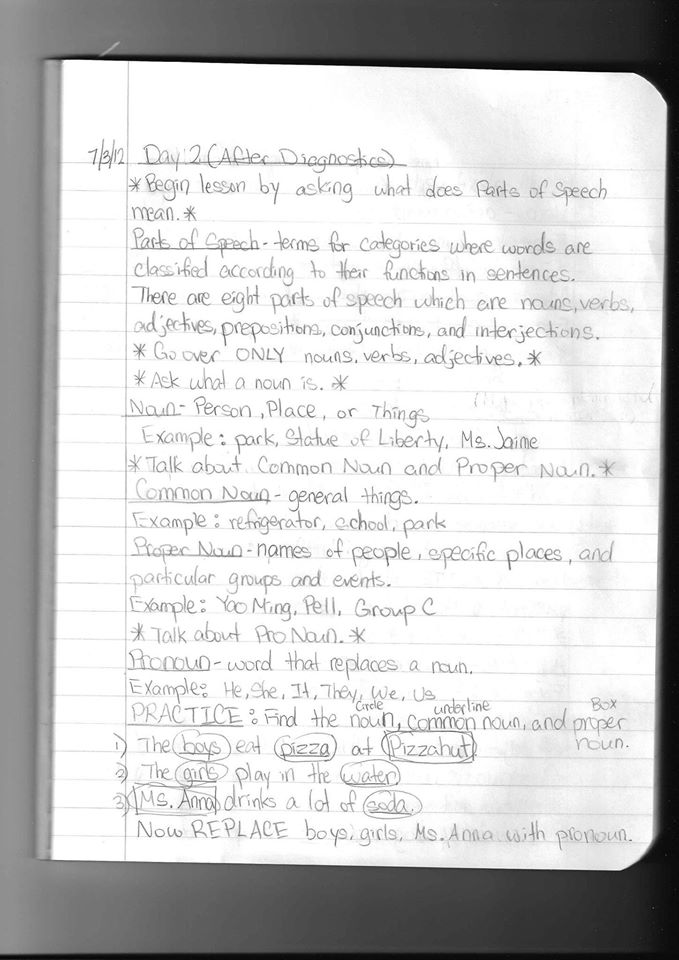 7/3/12 Day 2 (After Diagnostics)
*Begin lesson by asking what does Parts of Speech
mean.*
Parts of Speech - terms for categories where words are
classified according to their functions in sentences.
There are eight parts of speech which are nouns, verbs,
adjectives, prepositions, conjunctions, and interjections.
*Go over ONLY nouns, verbs, adjectives.*
*Ask what a noun is.*
Noun - Person, Place, or Things
Example: park, Statue of Liberty, Ms. Jaime
*Talk about Common Noun and Proper Noun.*
Common Noun - general things.
Example: refrigerator, school, park
Proper Noun - names of people, specific places, and
particular groups and events.
Example: Yao Ming, Pell, Group C
*Talk about ProNoun.*
Pronoun - word that replaces a noun.
Example: He, She, It, They, We, Us
Circle underline Box
PRACTICE: Find the noun, common noun, and proper
noun.
1) The boys eat pizza at Pizzahut
2) The girls play in the water
3) Ms. Anna drinks a lot of soda.
Now REPLACE boys, girls, Ms. Anna with pronoun.